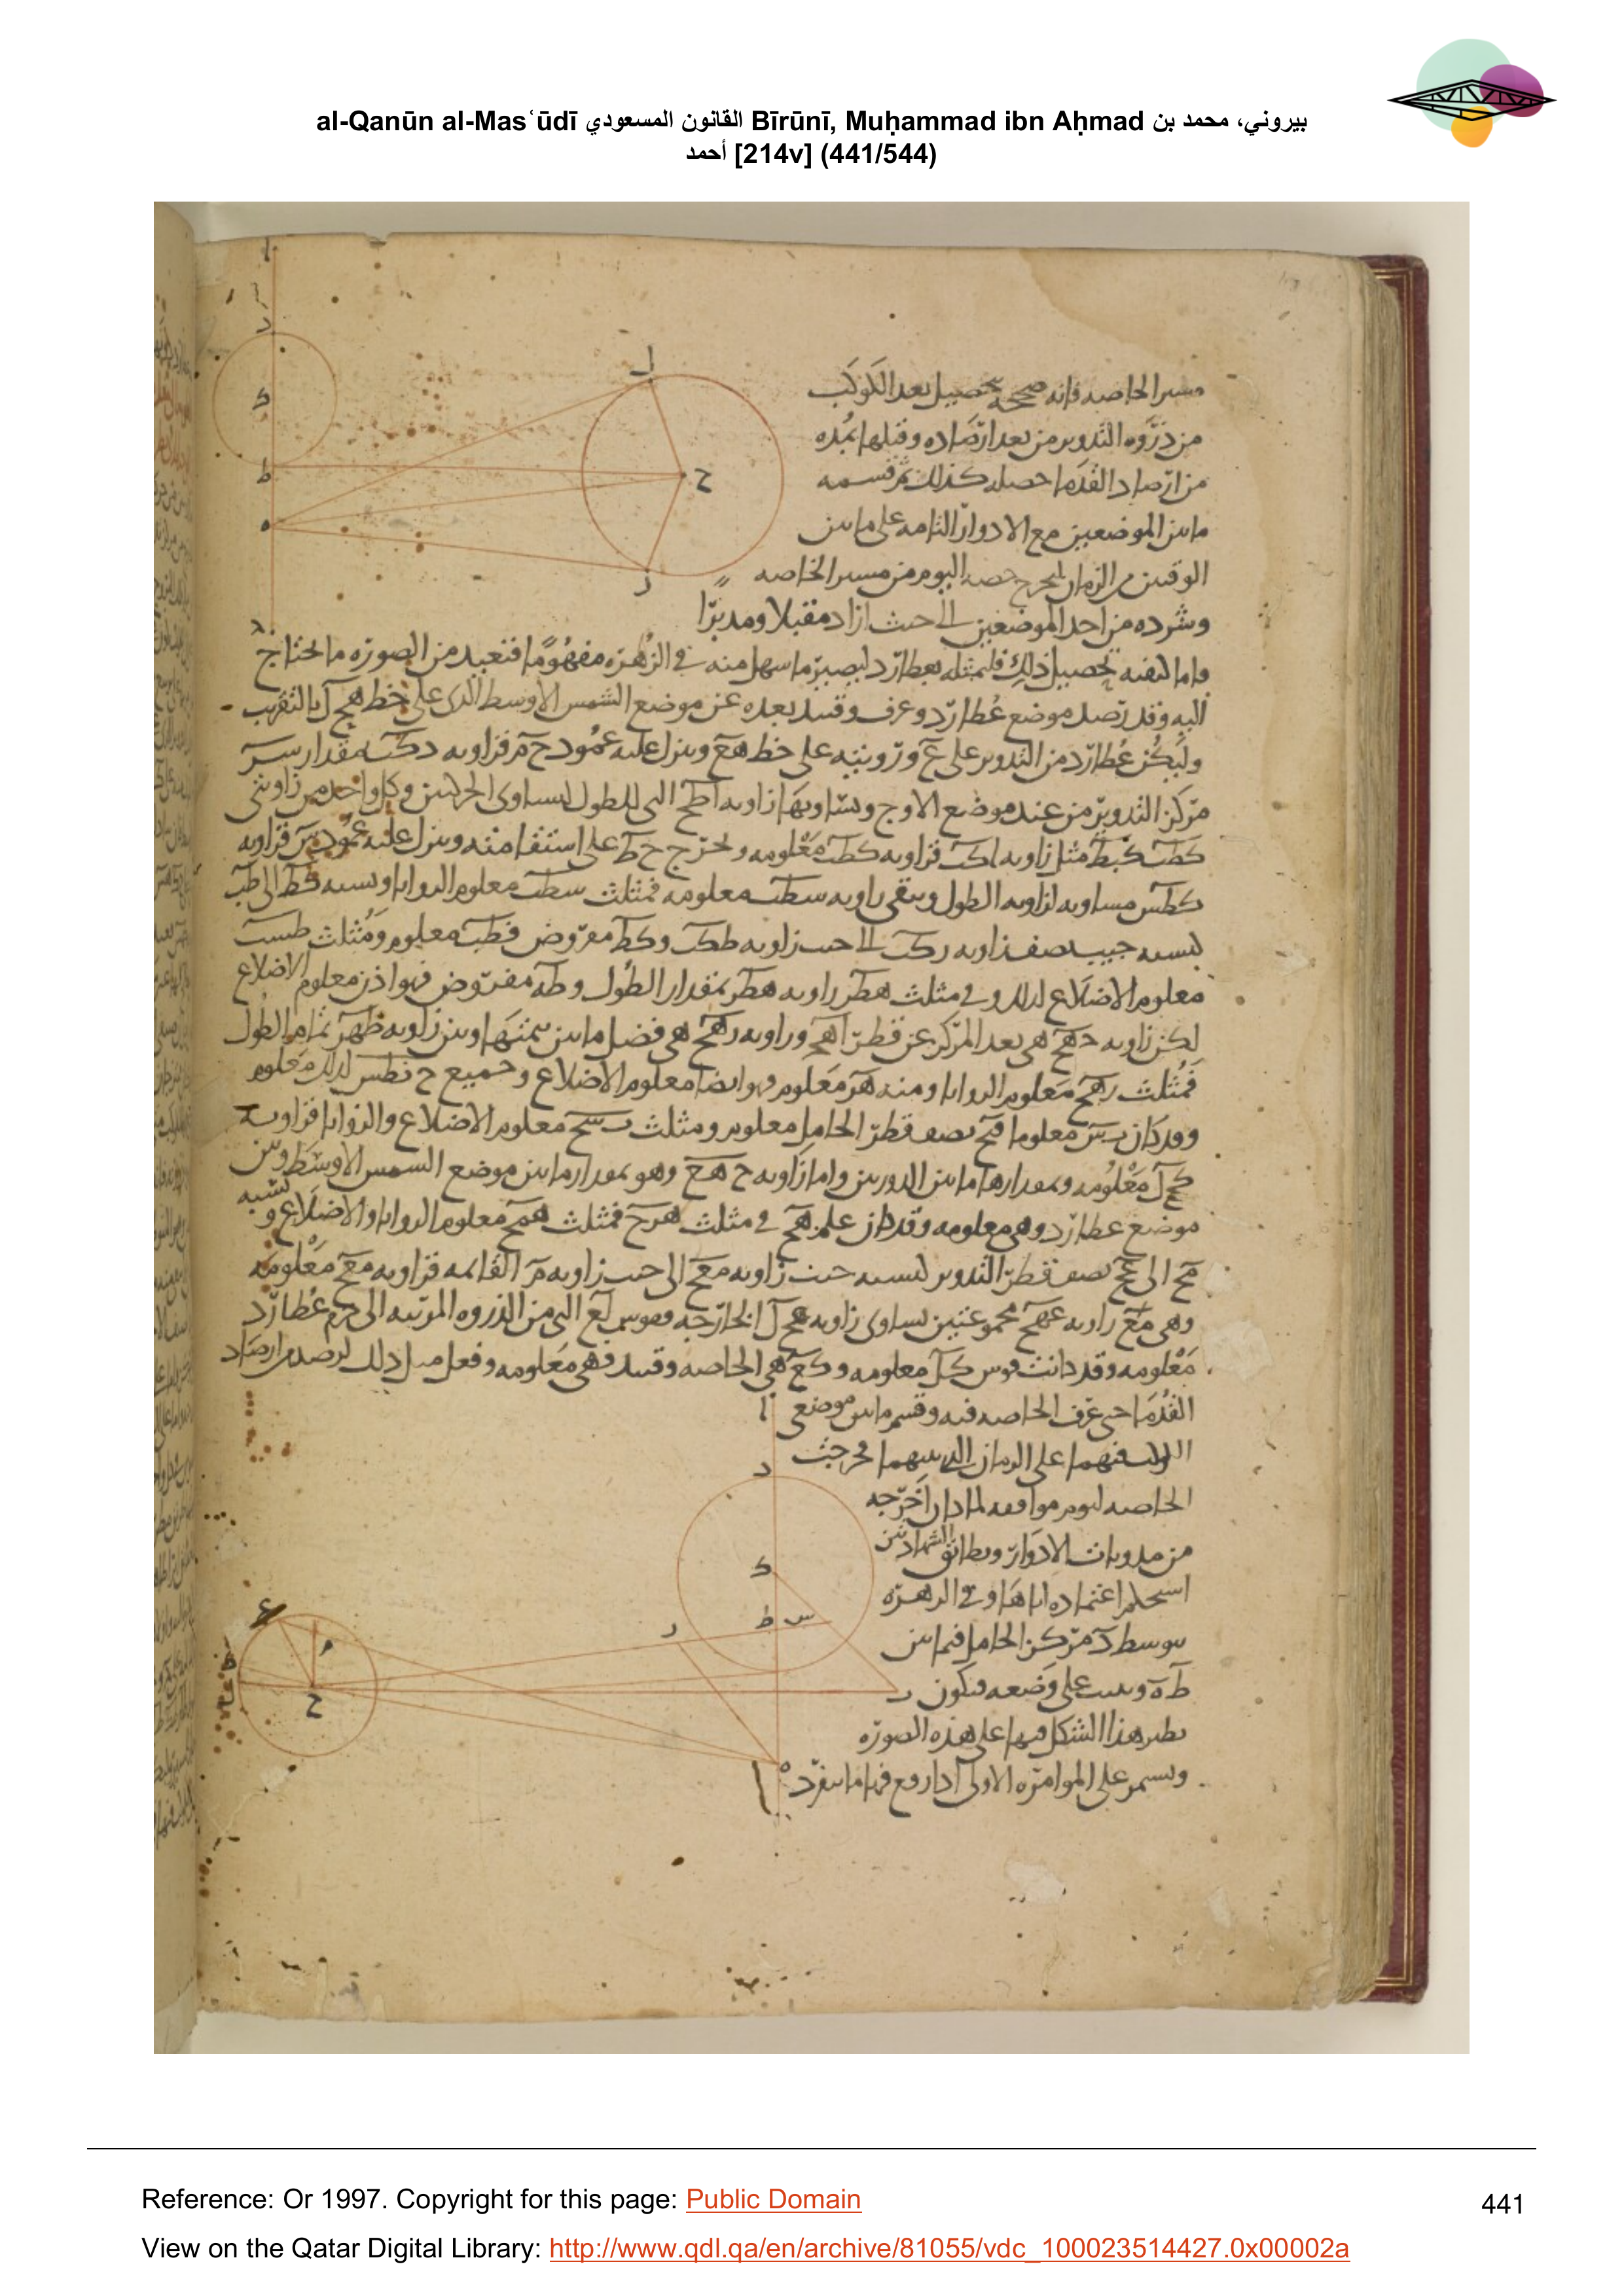 al-Qanūn al-Masʿūdī القانون المسعودي Bīrūnī, Muḥammad ibn Aḥmad بيروني، محمد بن
أحمد [214v] (441/544)
مسير الخاصه فانه صححه بتحصيل بعد الكوكب
من ذروه التدوير من بعد ارصاده وقبلها بمده
من ارصاد القدما حصله كذلك ثم قسمه
ما بين الموضعين مع الادوار التامه على ما بين
الوقتين من الزمان ليخرج حصه اليوم من مسير الخاصه
وشرده من احد الموضعين الى حيث اراد مقبلا ومدبرا
واما كيفيه تحصيل ذلك فليمثله بعطارد ليصير ما سهل منه في الزهره مفهوما فنعيد من الصوره ما يحتاج
اليه وقد رصد موضع عطارد وعرف وقيد بعده عن موضع الشمس الاوسط الذي على خط هح ل بالتقريب
وليكن عطارد من التدوير على ع ورويته على خط هع وينزل عليه عمود ح م فزاويه دكب مقدار سير
مركز التدوير من عند موضع الاوج وتساويها زاويه اطح التي للطول لتساوي الحركتين وكل واحد من زاويتي
كطب كبط مثل زاويه اكب فزاويه كطب معلومه ونخرج ح ط على استقامته وينزل عليه عمود بس فزاويه
كطس مساويه لزاويه الطول وتبقى زاويه سطب معلومه فمثلث سطب معلوم الزوايا ونسبه كط الى طب
كنسبه جيب نصف زاويه دكب الى جيب زاويه طكب وكط مفروض فطب معلوم ومثلث طسب
معلوم الاضلاع لذلك وفي مثلث هطر زاويه هطر بمقدار الطول وطه مفروض فهو اذن معلوم الاضلاع
لكن زاويه دهح هي بعد المركز عن قطر اهح وزاويه رهح هي فضل ما بين تمتها وبين زاويه طهر تمام الطول
فمثلث رهح معلوم الزوايا ومنه هر معلوم فهو ايضا معلوم الاضلاع وجميع ح رطس لذلك معلوم
وقد كان بس معلوما فبح نصف قطر الحامل معلوم ومثلث بسح معلوم الاضلاع والزوايا فزاويه
كح ل معلومه وبمقدارها ما بين الذروتين واما زاويه ح هع وهو بمقدار ما بين موضع الشمس الاوسط وبين
موضع عطارد وهي معلومه وقد كان علم هح في مثلث هرح فمثلث همح معلوم الزوايا والاضلاع ونسبه
مح الى حع نصف قطر التدوير كنسبه جيب زاويه معح الى جيب زاويه م القائمه فزاويه معح معلومه
وهي مع زاويه عهح مجموعتين تساوي زاويه عح ل الخارجه وقوس لع التي من الذروه المرئيه الى جرم عطارد
معلومه وقد كانت قوس كل معلومه وكع هي الخاصه وقيد فهي معلومه وفعل مثل ذلك لرصد من ارصاد
القدما حتى عرف الخاصه فيه وقسم ما بين موضعي
فيهما على الزمان الذي بينهما فخرجت
الخاصه ليوم موافقه لما كان اخرجه
من الادوار وتطابق الشهادتين
استحكم اعتماده اياها وفي الزهره
يتوسط د مركز الحامل فيما بين
ط ه على وضعه فيكون
نظير هذا الشكل فيها على هذه الصوره
ويستمر على الموامره الاولى فيها ما ينفرد
ا
د
ك
ط
ه
ح
ل
ر
ا
د
ك
ط
س
ر
ب
ه
ع
م
ح
Reference: Or 1997. Copyright for this page: Public Domain
441
View on the Qatar Digital Library: http://www.qdl.qa/en/archive/81055/vdc_100023514427.0x00002a